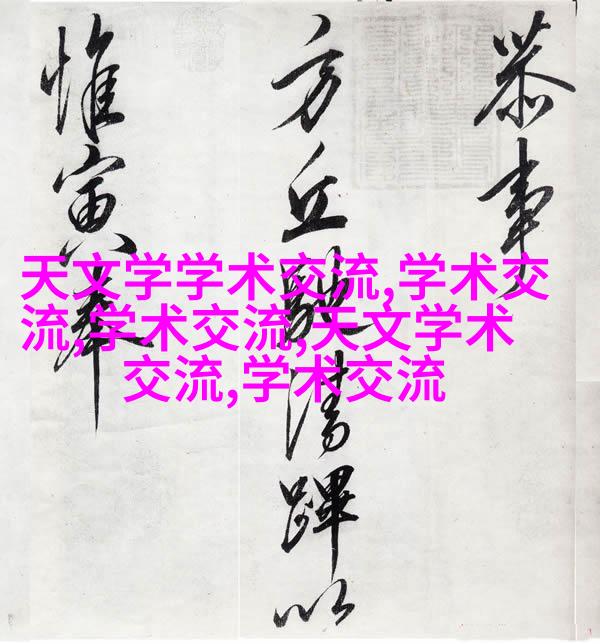 恭事
方丘清蹕以
惟寅奉
天文学学术交流,学术交
流,学术交流,天文学术
交流,学术交流